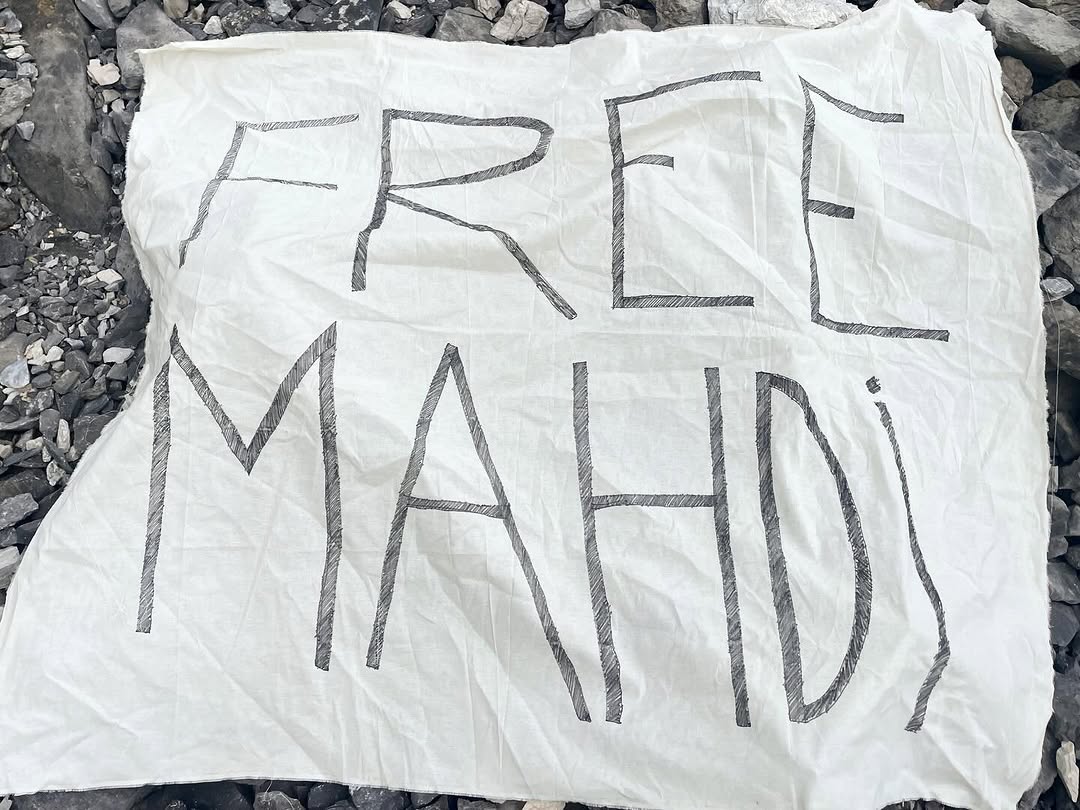 FREE
MAHDi